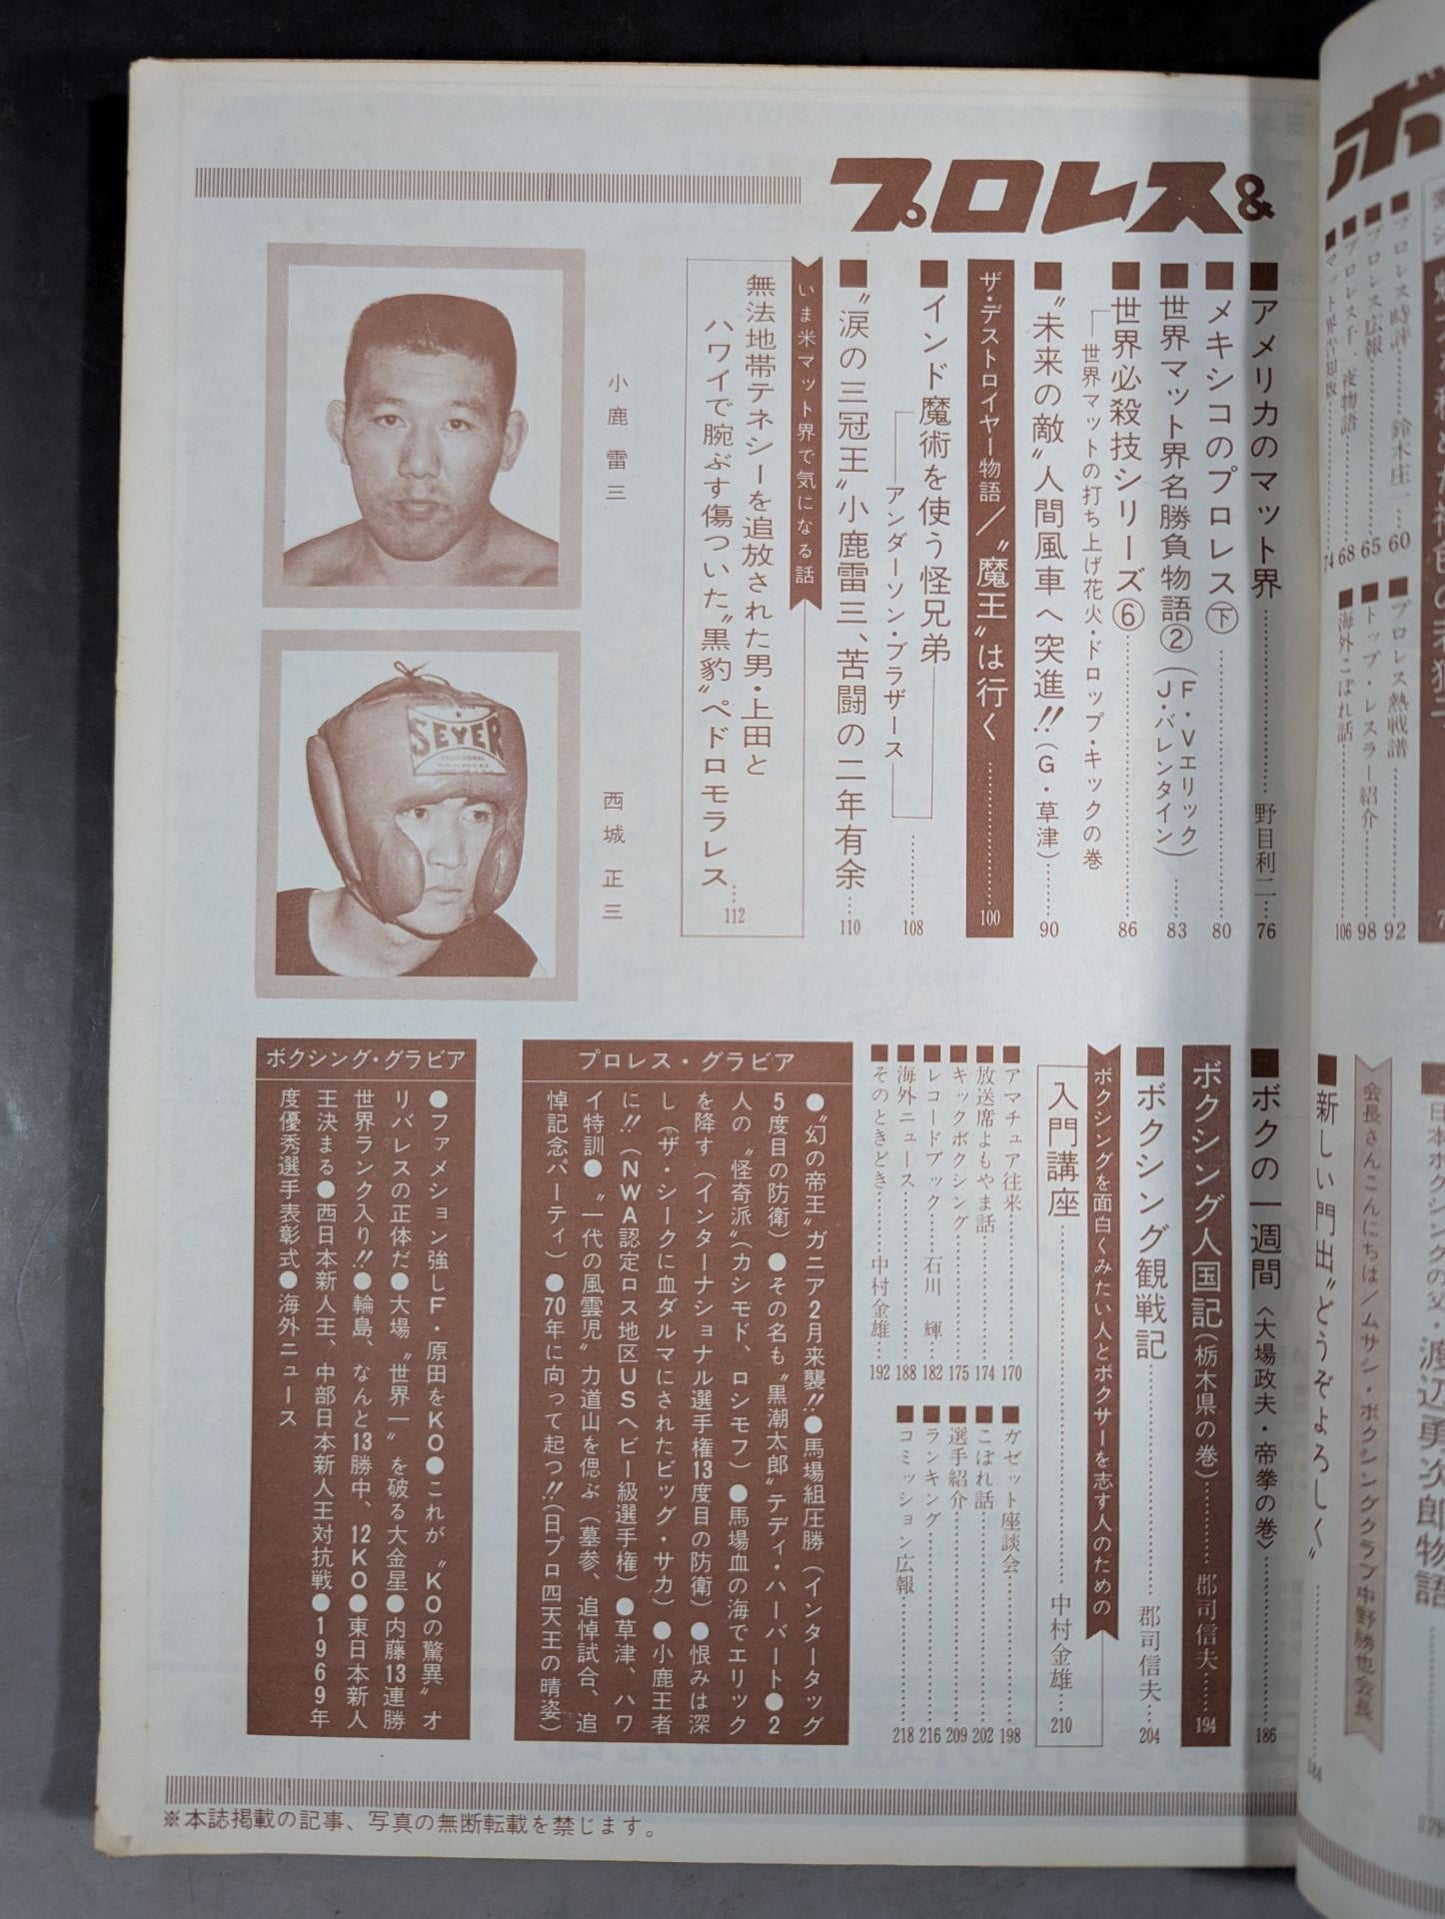 プロレス&
■アメリカのマット界……野目利二…76
■メキシコのプロレス㊦……80
■世界マット界名勝負物語②(F・Vエリック J・バレンタイン)……83
■世界必殺技シリーズ⑥……86
世界マットの打ち上げ花火・ドロップ・キックの巻
■〝未来の敵〟人間風車へ突進!!(G・草津)……90
ザ・デストロイヤー物語/〝魔王〟は行く……100
■インド魔術を使う怪兄弟……108
アンダーソン・ブラザース
■〝涙の三冠王〟小鹿雷三、苦闘の二年有余…110
いま米マット界で気になる話
無法地帯テネシーを追放された男・上田と
ハワイで腕ぶす傷ついた〝黒豹〟ペドロモラレス…112
小鹿雷三
SEYER
西城正三
■ボクの一週間〈大場政夫・帝拳の巻〉……186
ボクシング人国記(栃木県の巻)……郡司信夫……194
■ボクシング観戦記……郡司信夫…204
ボクシングを面白くみたい人とボクサーを志す人のための
入門講座……中村金雄…210
■アマチュア往来……170
■放送席よもやま話……174
■キックボクシング……175
■レコードブック…石川 輝…182
■海外ニュース……188
■そのときどき……中村金雄…192
■ガゼット座談会……198
■こぼれ話……202
■選手紹介……209
■ランキング……216
■コミッション広報……218
プロレス・グラビア
●〝幻の帝王〟ガニア2月来襲!!●馬場組圧勝(インタータッグ
5度目の防衛)●その名も〝黒潮太郎〟テディ・ハーバート●2
人の〝怪奇派〟(カシモド、ロシモフ)●馬場血の海でエリック
を降す(インターナショナル選手権13度目の防衛)●恨みは深
し(ザ・シークに血ダルマにされたビッグ・サカ)●小鹿王者
に!!(NWA認定ロス地区USヘビー級選手権)●草津、ハワ
イ特訓●〝一代の風雲児〟力道山を偲ぶ(墓参、追悼試合、追
悼記念パーティ)●70年に向って起つ!!(日プロ四天王の晴姿)
ボクシング・グラビア
●ファメション強しF・原田をKO●これが〝KOの驚異〟オ
リバレスの正体だ●大場〝世界一〟を破る大金星●内藤13連勝
世界ランク入り!!●輪島、なんと13勝中、12KO●東日本新人
王決まる●西日本新人王、中部日本新人王対抗戦●1969年
度優秀選手表彰式●海外ニュース
※本誌掲載の記事、写真の無断転載を禁じます。
ボ
プロレス時評……鈴木庄一…60
プロレス広報……65
プロレス千一夜物語……68
74
■プロレス熱戦譜……92
■トップ・レスラー紹介……98
■海外こぼれ話……106
日本ボクシングの父・渡辺勇次郎物語
会長さんこんにちは/ムサシ・ボクシングクラブ中野勝也会長
■新しい門出〝どうぞよろしく〟……184